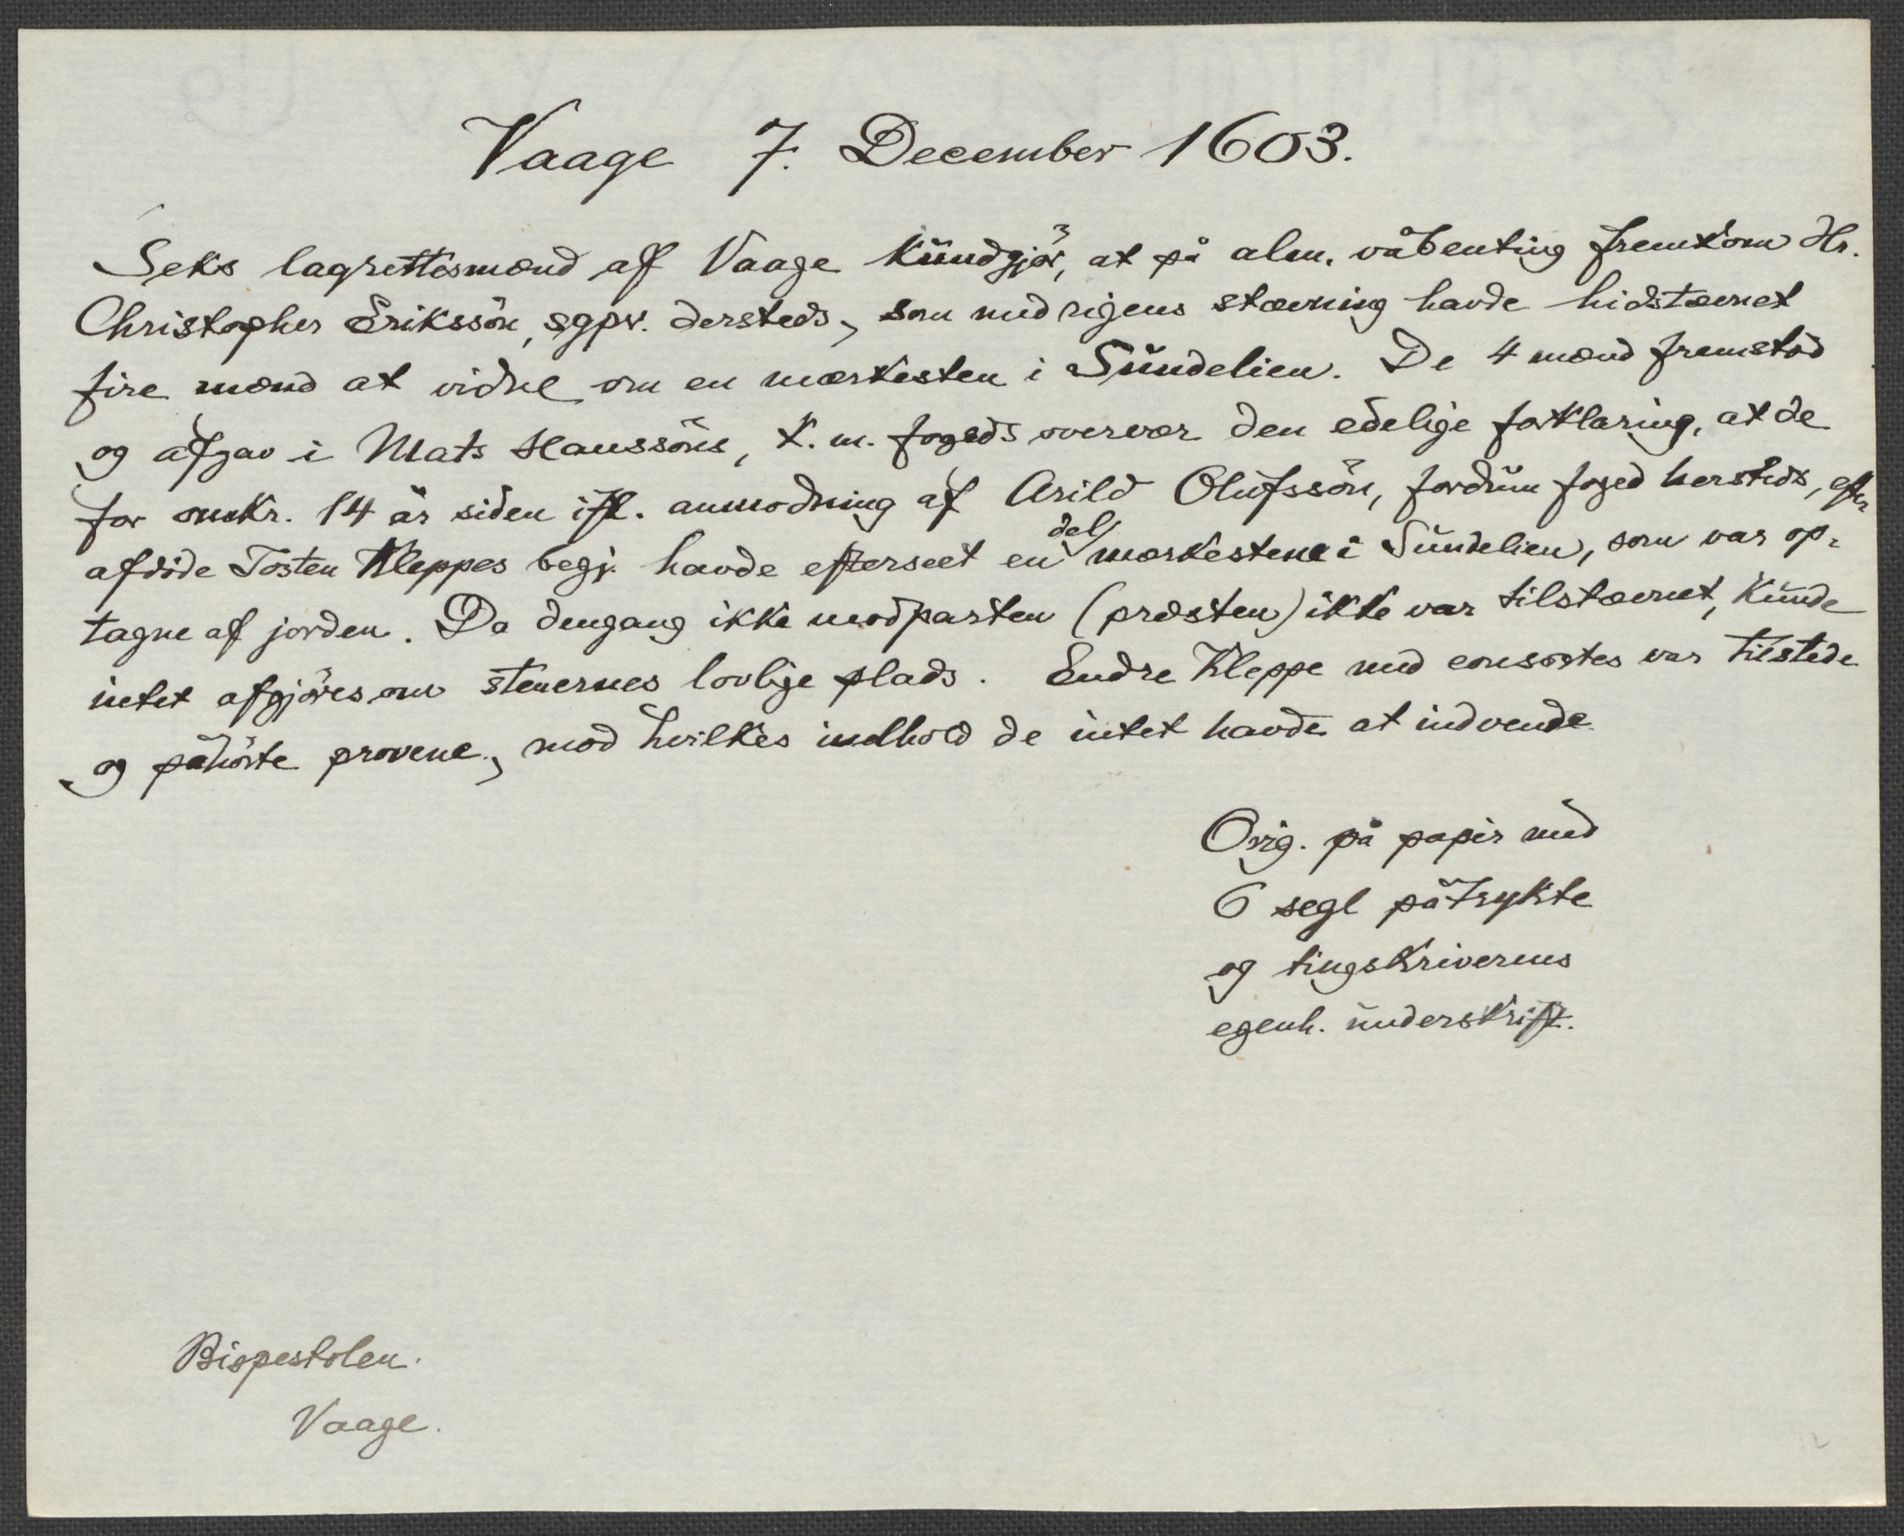 Vaage 7. December 1603.
Seks lagrettesmænd af Vaage kundgjør, at på alm. våbenting fremkom Hr.
Christopher Erikssön, sgpr. dersteds, som med rigens stævning havde hidstævnet
fire mænd at vidne om en merkesten i Sundelien. De 4 mænd fremstod
og afgav i Mats Hanssöns, k. m. fogeds overvær den edelige forklaring, at de
for omkr. 14 år siden ifl. anmodning af Arild Olufssön, fordum foged hersteds, efter
afdöde Tosten Kleppes begj. havde efterseet en del merkestene i Sundelien, som var op-
tagne af jorden. Da dengang ikke modparten (præsten) ikke var tilstævnet, kunde
intet afgjöres om stenernes lovlige plads. Endre Kleppe med consortes var tilstede
og påhörte provene, mod hvilkes indhold de intet havde at indvende.
Orig. på papir med
6 segl påtrykte
og tingskriverens
egenh. underskrift.
Bispestolen.
Vaage.